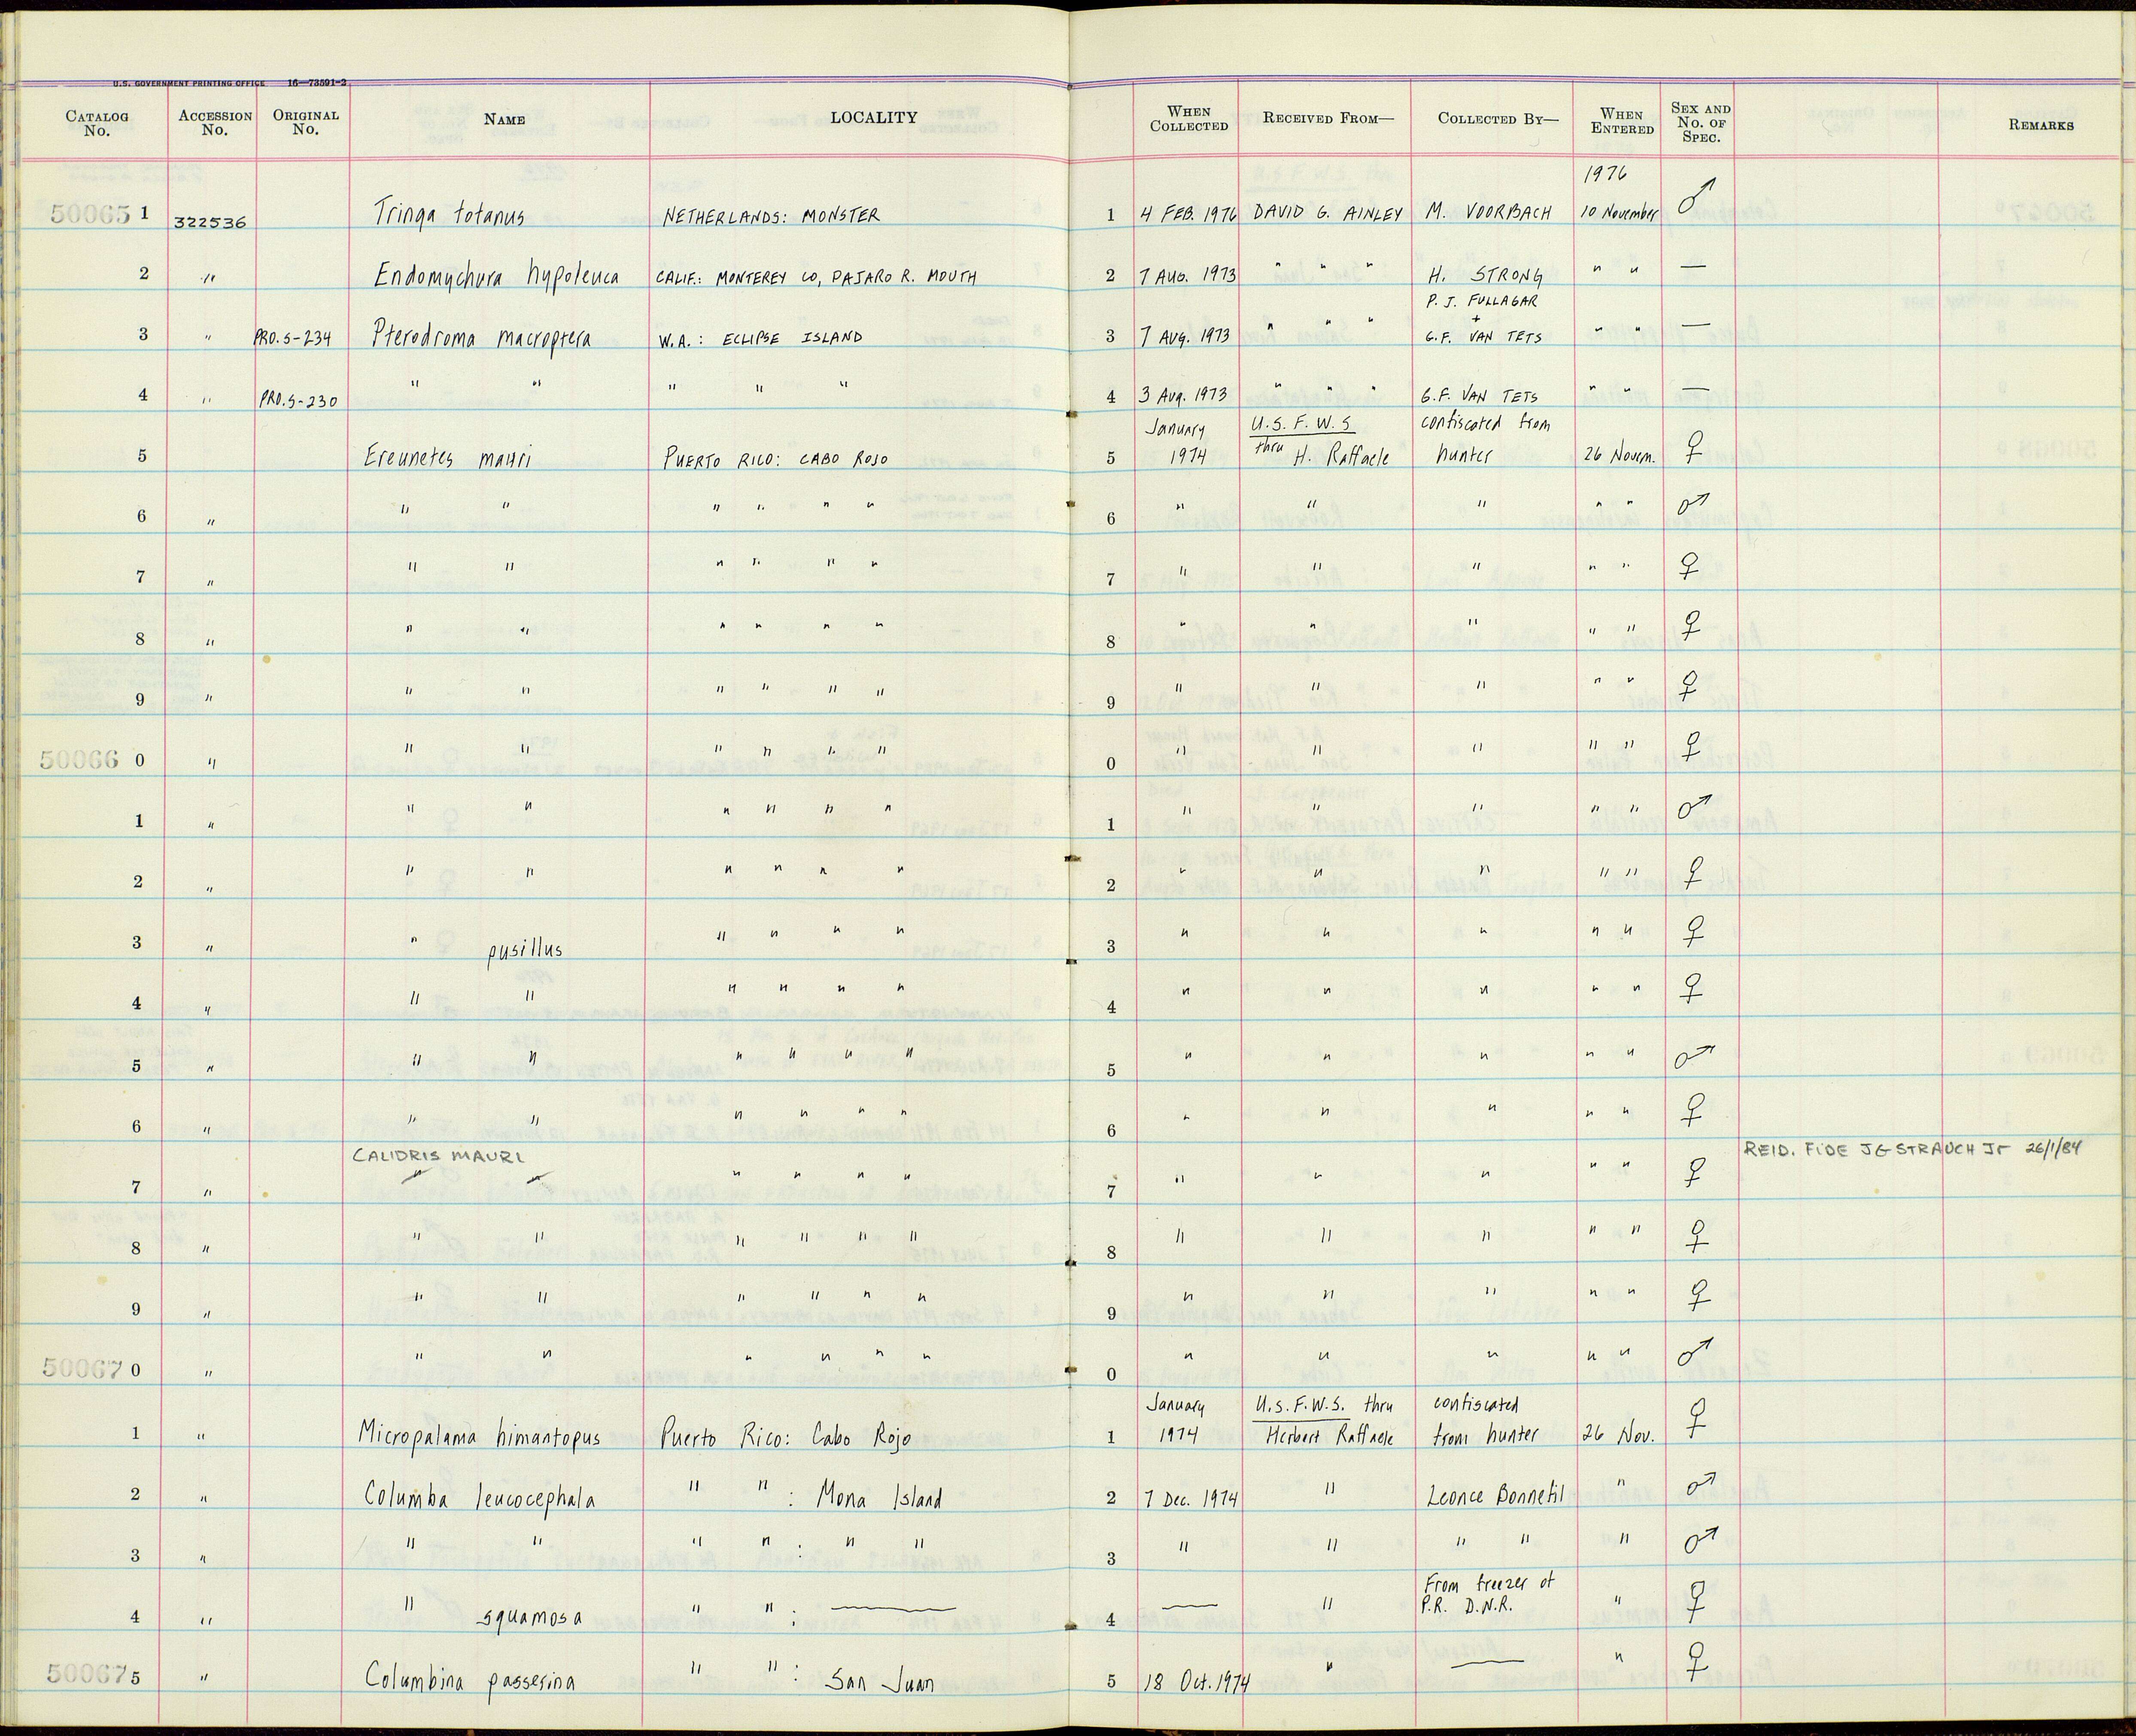 U.S. GOVERNMENT PRINTING OFFICE 16—73591-2
CATALOG No. ACCESSION No. ORIGINAL No. NAME LOCALITY WHEN COLLECTED RECEIVED FROM— COLLECTED BY— WHEN ENTERED SEX AND No. OF SPEC. REMARKS
1976
500651 322536 Tringa totanus NETHERLANDS: MONSTER 1 4 FEB. 1976 DAVID G. AINLEY M. VOORBACH 10 November ♂
2 " Endomychura hypoleuca CALIF.: MONTEREY CO, PAJARO R. MOUTH 2 7 AUG. 1973 " " " H. STRONG " " —
P. J. FULLAGAR
+
3 " PRO.S-234 Pterodroma macroptera W.A.: ECLIPSE ISLAND 3 7 AUG. 1973 " " " G.F. VAN TETS " " —
4 " PRO.S-230 " " " " " 4 3 Aug. 1973 " " " G.F. VAN TETS " " —
January U.S.F.W.S confiscated from
5 Ereunetes mauri PUERTO RICO: CABO ROJO 5 1974 thru H. Raffaele hunter 26 Novem. ♀
6 " " " " " " " 6 " " " " " ♂
7 " " " " " " " 7 " " " " " ♀
8 " " " " " " " 8 " " " " " ♀
9 " " " " " " " 9 " " " " " ♀
50066 0 " " " " " " " 0 " " " " " ♀
1 " " " " " " " 1 " " " " " ♂
2 " " " " " " " 2 " " " " " ♀
3 " " pusillus " " " " 3 " " " " " ♀
4 " " " " " " " 4 " " " " " ♀
5 " " " " " " " 5 " " " " " ♂
6 " " " " " " " 6 " " " " " ♀
CALIDRIS MAURI REID. FIDE JG STRAUCH Jr 26/1/84
7 " " " " " " " 7 " " " " " ♀
8 " " " " " " " 8 " " " " " ♀
9 " " " " " " " 9 " " " " " ♀
50067 0 " " " " " " " 0 " " " " " ♂
January U.S.F.W.S. thru confiscated
1 " Micropalama himantopus Puerto Rico: Cabo Rojo 1 1974 Herbert Raffaele from hunter 26 Nov. ♀
2 " Columba leucocephala " " : Mona Island 2 7 Dec. 1974 " Leonce Bonnefil " ♂
3 " " " " " : " " 3 " " " " " ♂
From freezer of
4 " " squamosa " " : — 4 — " P.R. D.N.R. " ♀
50067 5 " Columbina passerina " " : San Juan 5 18 Oct. 1974 " — " ♀